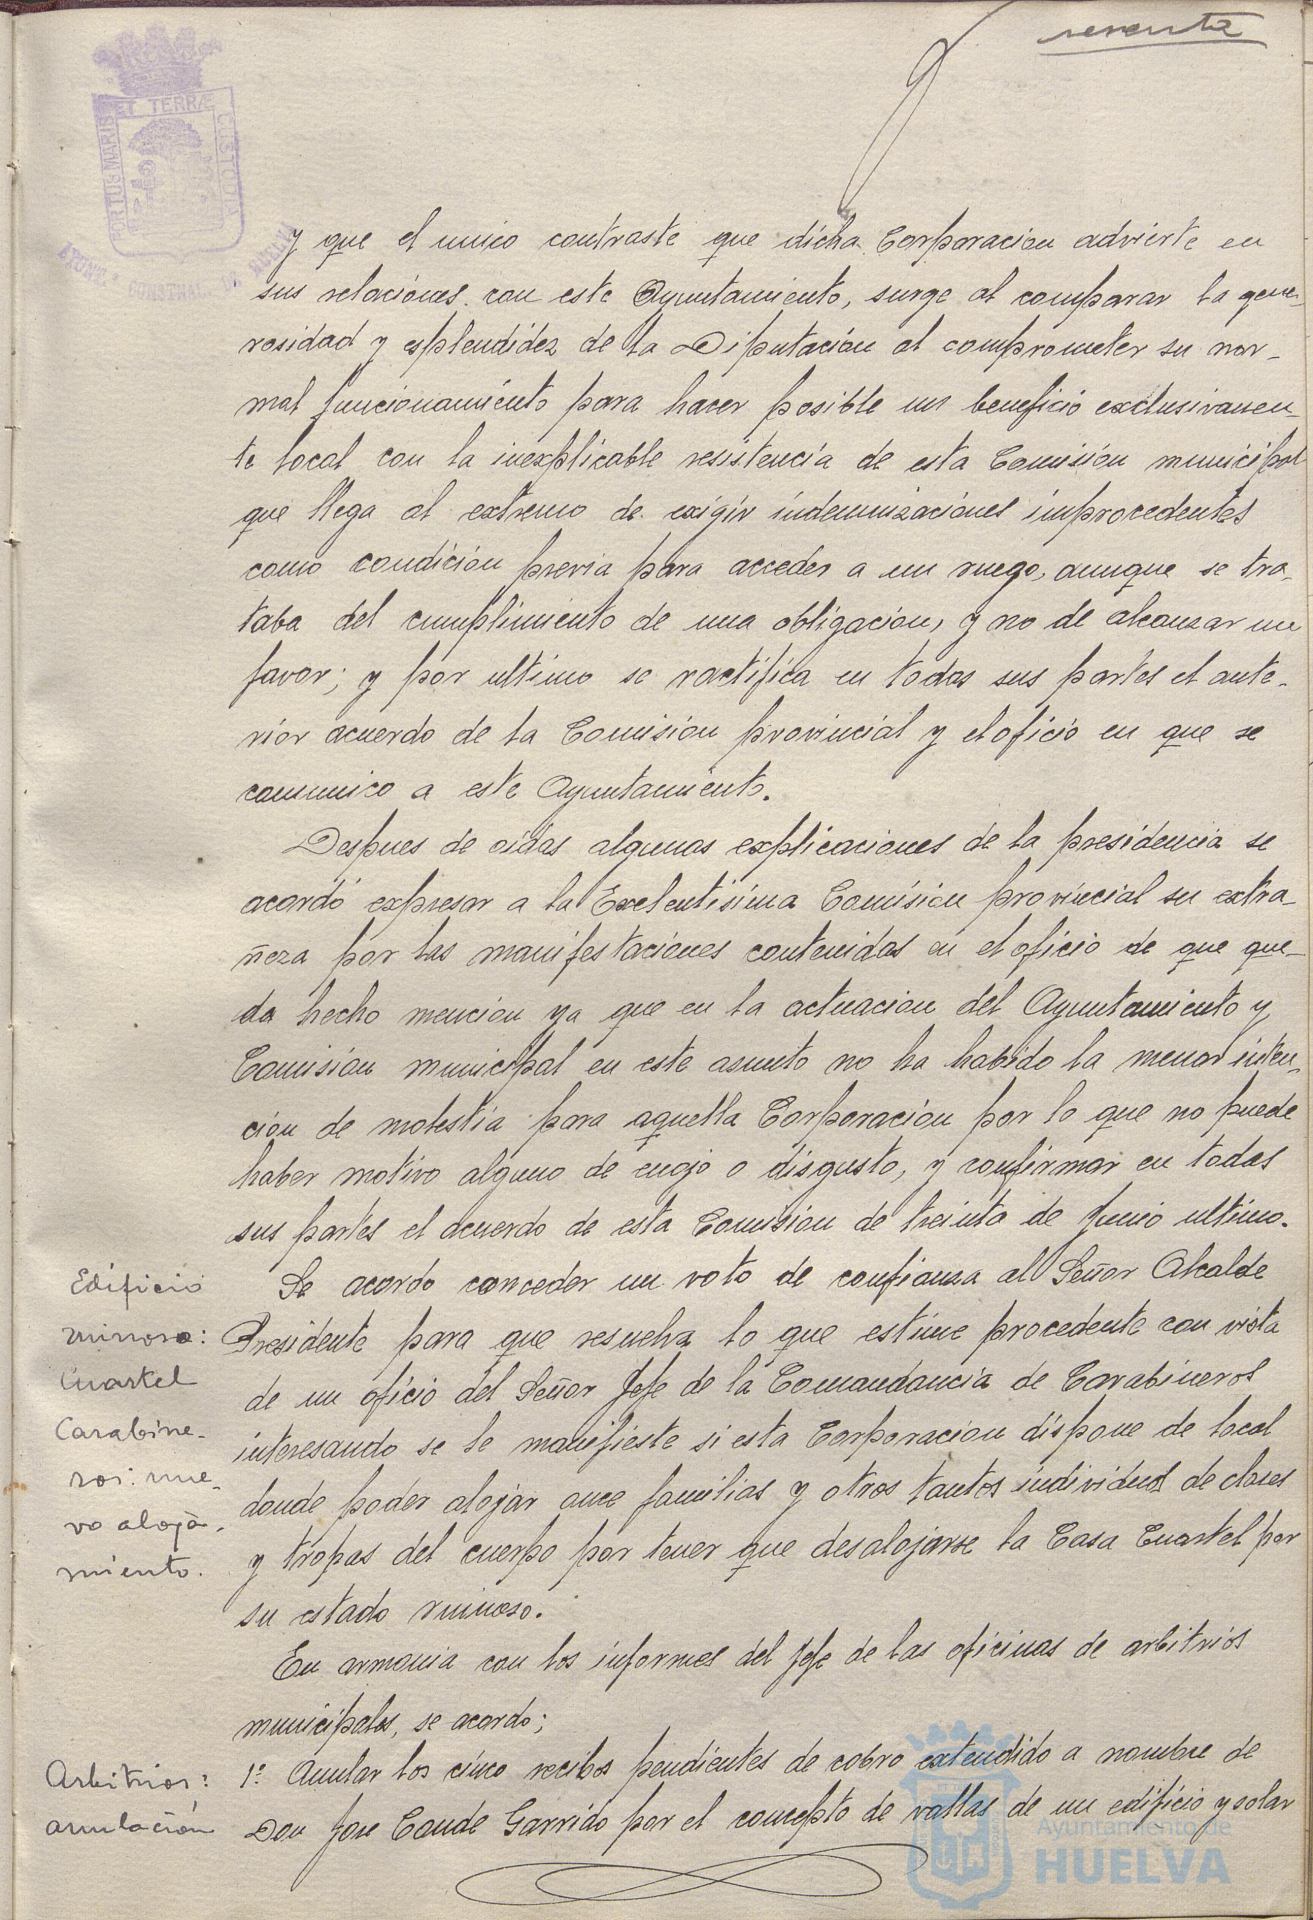 sesenta
PORTUS MARIS ET TERRÆ CUSTODIA
AYUNT. CONSTNAL. DE HUELVA
y que el unico contraste que dicha Corporacion advierte en
sus relaciones con este Ayuntamiento, surge al comparar la gene-
rosidad y esplendidez de la Diputación al comprometer su nor-
mal funcionamiento para hacer posible un beneficio exclusivamen-
te local con la inexplicable resistencia de esta Comisión municipal
que llega al extremo de exigir indemnizaciones improcedentes
como condición previa para acceder a un ruego, aunque se tra-
taba del cumplimiento de una obligacion, y no de alcanzar un
favor; y por ultimo se ractifica en todas sus partes el ante-
rior acuerdo de la Comision provincial y el oficio en que se
comunico a este Ayuntamiento.
Despues de oidas algunas explicaciones de la presidencia se
acordó expresar a la Exelentisima Comisión provincial su extra-
ñeza por las manifestaciones contenidas en el oficio de que que-
da hecho mencion ya que en la actuacion del Ayuntamiento y
Comisión municipal en este asunto no ha habido la menor inten-
ción de molestia para aquella Corporación por lo que no puede
haber motivo alguno de enojo o disgusto, y confirmar en todas
sus partes el acuerdo de esta Comision de treinta de Junio ultimo.
Edificio
ruinoso:
Cuartel
Carabine-
ros: nue-
vo aloja-
miento.
Se acordo conceder un voto de confianza al Señor Alcalde
Presidente para que resuelva lo que estime procedente con vista
de un oficio del Señor Jefe de la Comandancia de Carabineros
interesando se le manifieste si esta Corporacion dispone de local
donde poder alojar once familias y otros tantos individuos de clases
y tropas del cuerpo por tener que desalojarse la Casa Cuartel por
su estado ruinoso.
En armonia con los informes del Jefe de las oficinas de arbitrios
municipales, se acordo;
Arbitrios:
anulación
1º Anular los cinco recibos pendientes de cobro extendido a nombre de
Don Jose Conde Garrido por el concepto de vallas de un edificio y solar
Ayuntamiento de
HUELVA